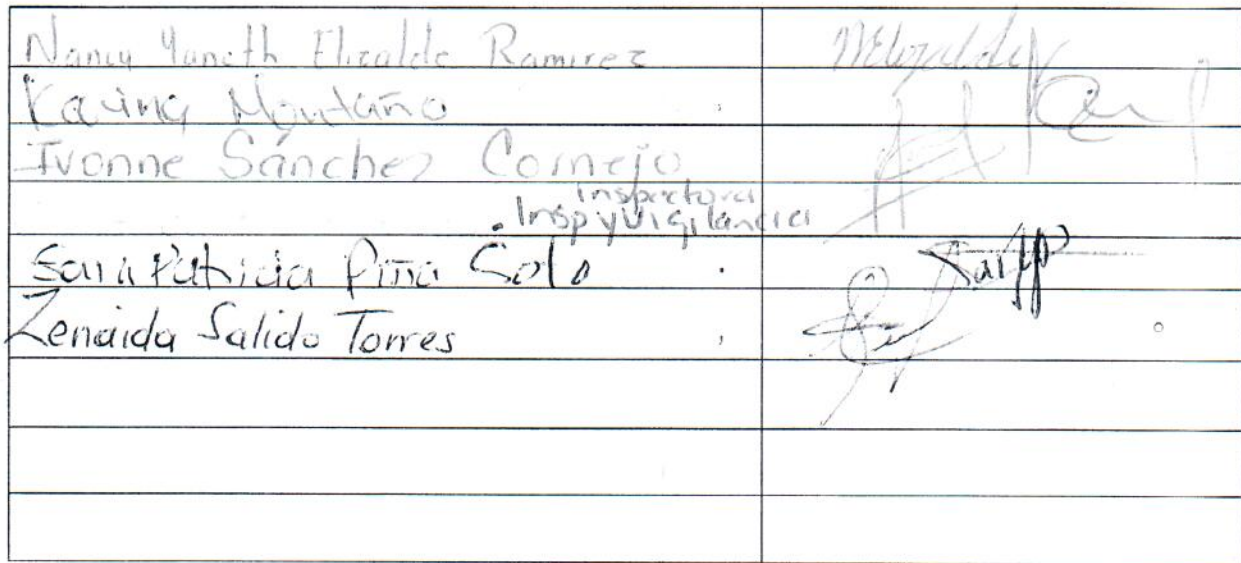 Nancy Yaneth Elizalde Ramirez NElizalde
Karina Montaño
Ivonne Sánchez Cornejo
inspectora
Insp y vigilancia
Sara Patricia Piña Soto
Zenaida Salido Torres